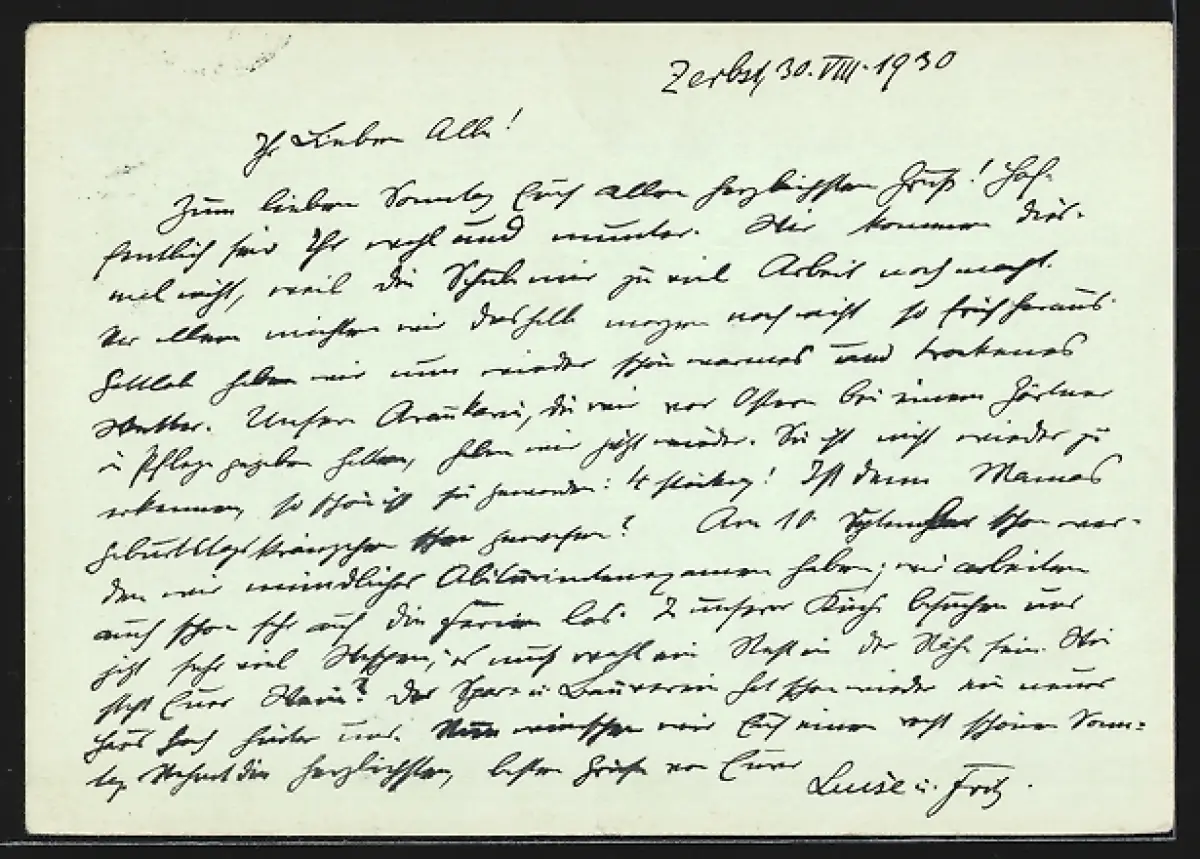 Zerbst, 30. VIII. 1930
Ihr Lieben Alle!
Zum lieben Sonntag Euch allen herzlichsten Gruß! Hof-
fentlich seid Ihr wohl und munter. Wir kommen dies-
mal nicht, weil die Schule mir zu viel Arbeit noch macht.
Vor allem möchten wir deshalb morgen noch nicht so früh heraus.
Gottlob haben wir nun wieder schön warmes und trockenes
Wetter. Unsere Araukarie, die wir vor Ostern bei einem Gärtner
in Pflege gegeben hatten, haben wir jetzt wieder. Sie ist nicht wieder zu
erkennen, so schön ist sie geworden: 4 stöckig! Ist denn Mamas
Geburtstagskränzchen schon gewesen? Am 10. September schon wer-
den wir mündliches Abiturientenexamen haben; wir arbeiten
auch schon sehr auf die Ferien los. In unserer Küche besuchen uns
jetzt sehr viel Wespen; es muß wohl ein Nest in der Nähe sein. Wie
steht Euer Wein? Der Spar- u. Bauverein hat schon wieder ein neues
Haus hoch hinter uns. Nun wünschen wir Euch einen recht schönen Sonn-
tag. Nehmt die herzlichsten, besten Grüße von Euren
Luise u. Fritz.